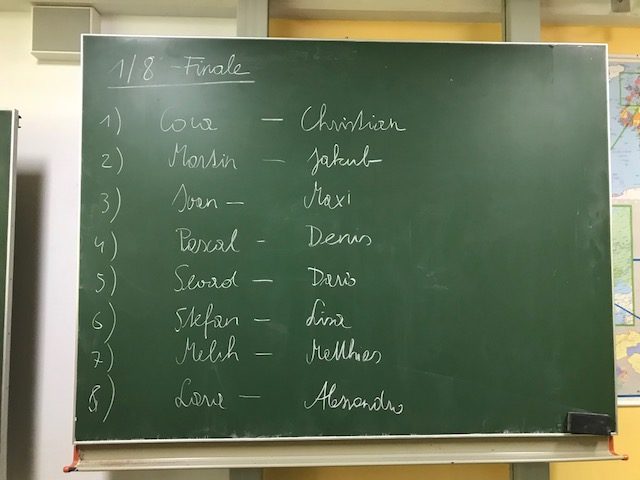 1/8 - Finale
1) Cora — Christian
2) Martin — Jakub
3) Ivan — Maxi
4) Pascal - Denis
5) — Dario
6) Stefan — Lisa
7) — Matthias
8) — Alessandro